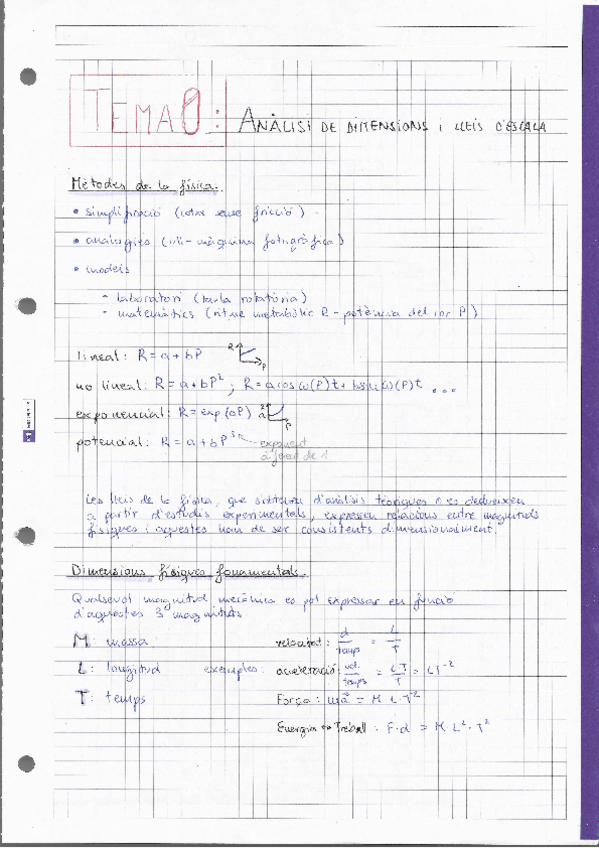 TEMA 0: ANÀLISI DE DIMENSIONS I LLEIS D'ESCALA
Mètodes de la física.
• simplificació (cotxe sense fricció)
• analogies (ull-màquina fotogràfica)
• models
- laboratori (taula rotatòria)
- matemàtics (ritme metabòlic R - potència del cor P)
lineal: R = a + bP
R
P
no lineal: R = a + bP²; R = a cos ω(P)t + b sin ω(P)t ...
exponencial: R = exp(bP)
P
potencial: R = a + bP
exponent
Les lleis de la física, que s'obtenen d'anàlisis teòriques o es dedueixen
a partir d'estudis experimentals, expressen relacions entre magnituds
físiques i aquestes han de ser consistents dimensionalment.
Dimensions físiques fonamentals.
Qualsevol magnitud mecànica es pot expressar en funció
d'aquestes 3 magnituds
M: massa
L: longitud
T: temps
exemples:
velocitat: d/temps = L/T
acceleració: vel./temps = LT/T = LT⁻²
Força: ma = M L T⁻²
Energia ↔ Treball: F·d = M L²·T²